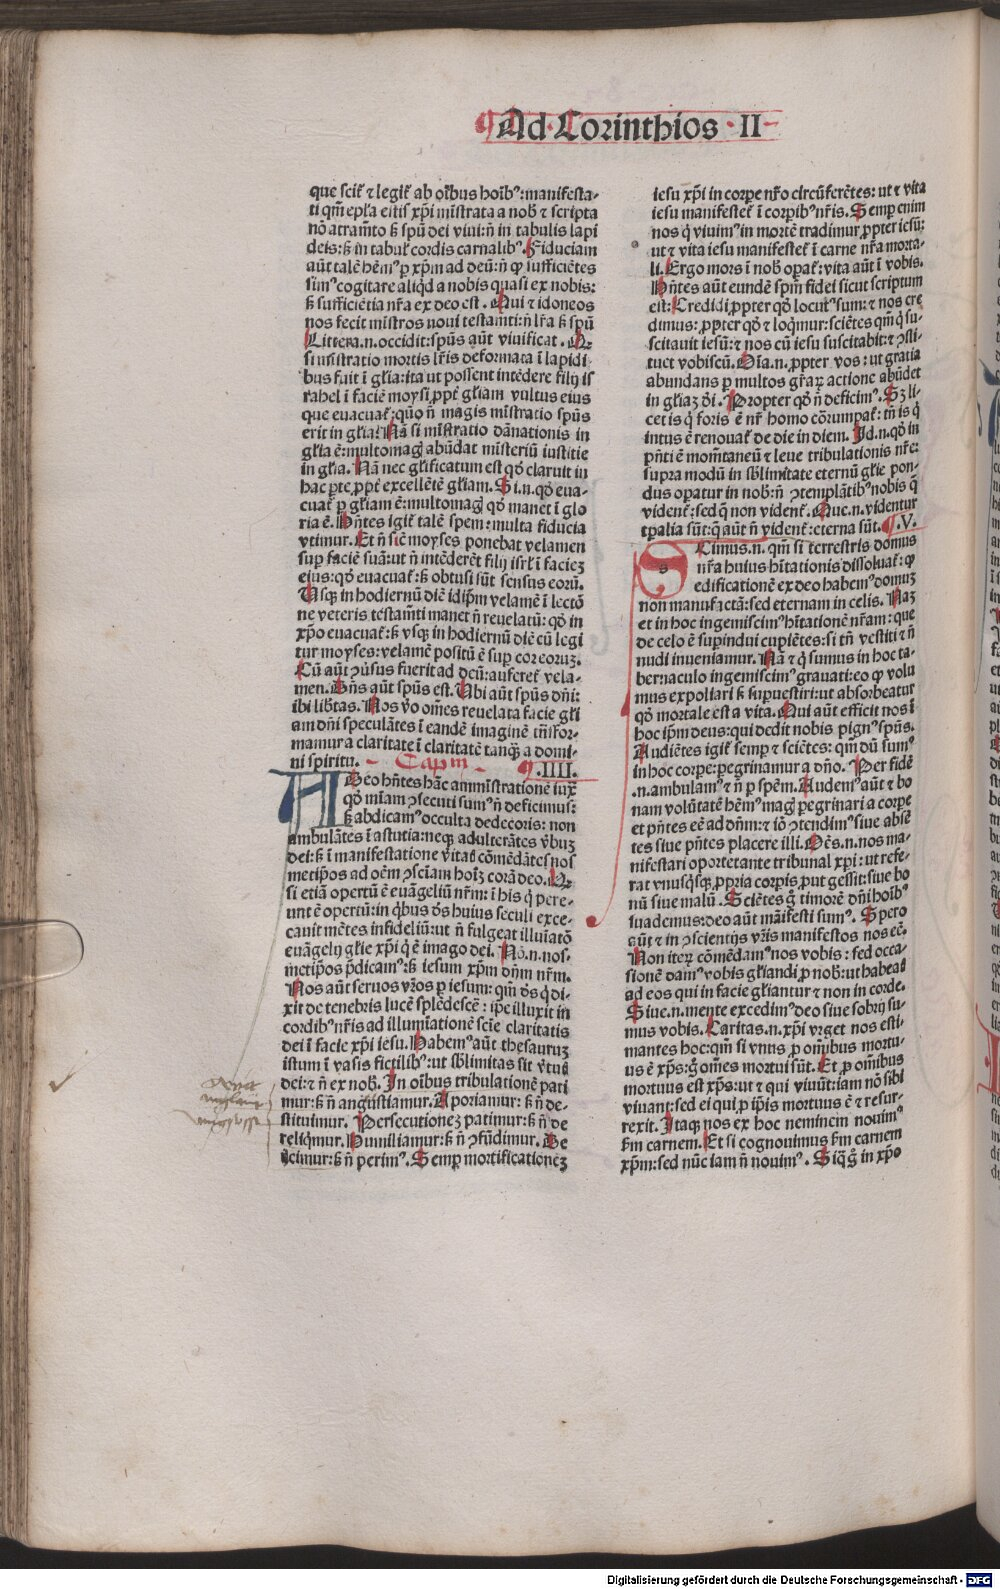 Ad Corinthios · II
que scit᷑ ⁊ legit᷑ ab oībus hoībꝰ: manifesta-
ti qm̄ epl̄a estis xp̄i mīstrata a nob̄ ⁊ scripta
nō atram̄to ß spū dei viui: n̄ in tabulis lapi
deis: ß in tabul᷑ cordis carnalibꝰ. Fiduciam
aūt talē hēmꝰ ꝑ xp̄m ad deū: n̄ ꝙ sufficiētes
simꝰ cogitare aliqd̄ a nobis quasi ex nobis:
ß sufficiētia nr̄a ex deo est. Qui ⁊ idoneos
nos fecit mīstros noui testamti: n̄ lr̄a ß spū
Littera .n. occidit: spūs aūt viuificat. Qꝫ
si mīstratio mortis lr̄is deformata ī lapidi
bus fuit ī gl̄ia: ita ut possent intēdere filij is
rahel ī faciē moysi ꝓpt᷑ gl̄iam vultus eius
que euacuat᷑: quō n̄ magis mīstratio spūs
erit in gl̄ia? Nā si mīstratio dānationis in
gl̄ia ē: multomag̊ abūdat misteriū iustitie
in gl̄ia. Nā nec gl̄ificatum est qd̄ claruit in
hac ꝑte ꝓpt᷑ excellētē gl̄iam. Si .n. qd̄ eua-
cuat᷑ ꝑ gl̄iam ē: multomag̊ qd̄ manet ī glo
ria ē. Hn̄tes igit᷑ talē spem: multa fiducia
vtimur. Et n̄ sic moyses ponebat velamen
suꝑ faciē suā: ut n̄ intēderēt filij isrl̄ ī faciez
eius: qd̄ euacuat᷑: ß obtusi sūt sensus eorū.
Vsqꝫ in hodiernū diē idip̄m velamē ī lectō
ne veteris testamti manet n̄ reuelatū: qd̄ in
xp̄o euacuat᷑: ß vsqꝫ in hodiernū diē cū legi
tur moyses: velamē positū ē suꝑ cor eoruꝫ.
Cū aūt ↄuersus fuerit ad deū: auferet᷑ vela-
men. Dn̄s aūt spūs est. Ubi aūt spūs dn̄i:
ibi libtas. Nos ṽo omēs reuelata facie gl̄i
am dn̄i speculātes ī eandē imaginē trn̄sfor-
mamur a claritate ī claritatē tanqꝫ a domi-
ni spiritu. Capm .IIII.
Ideo hn̄tes hāc amministrationē iux᷑
qd̄ mīam ↄsecuti sumꝰ n̄ deficimus:
ß abdicamꝰ occulta dedecoris: non
ambulātes ī astutia: neqꝫ adulterātes v̄buꝫ
dei: ß ī manifestatione v̄itatꝭ cōmēdātes nos
metip̄os ad oēm ↄsciam hoīꝫ corā deo. Qꝫ
si etiā opertū ē euāgeliū nr̄m: ī his q̄ pere-
unt ē opertū: in qbus dꝰs huius seculi exce-
cauit mētes infideliū: ut n̄ fulgeat illuīatō
euāgelij gl̄ie xp̄i q̄ ē imago dei. Nō .n. nos-
metip̄os p̄dicamꝰ: ß iesum xp̄m dn̄m nr̄m.
Nos aūt seruos vr̄os ꝑ iesum: qm̄ dꝰs q̄ di-
xit de tenebris lucē splēdescē: ip̄e illuxit in
cordibꝰ nr̄is ad illumīationē scīe claritatis
dei ī facie xp̄i iesu. Habemꝰ aūt thesauruꝫ
istum ī vasis fictilibꝰ: ut sb̄limitas sit v̄tutꝭ
dei: ⁊ n̄ ex nob̄. In oībus tribulationē pati
mur: ß n̄ angustiamur. Aporiamur: ß n̄ de-
stituimur. Persecutioneꝫ patimur: ß n̄ de
relinq̄mur. Humiliamur: ß n̄ ↄfūdimur. De
ijcimur: ß n̄ perimꝰ. Semꝑ mortificationeꝫ
iesu xp̄i in corꝑe nr̄o circūferētes: ut ⁊ vita
iesu manifestet᷑ ī corpibꝰ nr̄is. Semꝑ enim
nos q̄ viuimꝰ in mortē tradimur ꝓpter iesū:
ut ⁊ vita iesu manifestet᷑ ī carne nr̄a morta-
li. Ergo mors ī nob̄ opat᷑: vita aūt ī vobis.
Hn̄tes aūt eundē spm̄ fidei sicut scriptum
est: Credidi ꝓpter qd̄ locutꝰ sum: ⁊ nos cre
dimus: ꝓpter qd̄ ⁊ loqmur: sciētes qm̄ q̄ su-
scitauit iesū: ⁊ nos cū iesu suscitabit: ⁊ ↄsti-
tuet vobiscū. Oīa .n. ꝓpter vos: ut gratia
abundans ꝑ multos gr̄aꝝ actione abūdet
in gl̄iaꝫ dei. Propter qd̄ n̄ deficimꝰ. Sꝫ li-
cet is q̄ foris ē nr̄ homo corrumpat᷑: tn̄ is q̄
intus ē renouat᷑ de die in diem. Id .n. qd̄ in
pn̄ti ē mom̄taneū ⁊ leue tribulationis nr̄e:
supra modū in sb̄limitate eternū gl̄ie pon-
dus opatur in nob̄: n̄ ↄtemplātibꝰ nobis q̄
vident᷑: sed q̄ non vident᷑. Que .n. videntur
tꝑalia sūt: q̄ aūt n̄ vident᷑: eterna sūt. .V.
s Cimus .n. qm̄ si terrestris domus
nr̄a huius hītationis dissoluat᷑: ꝙ
edificationē ex deo habemꝰ domuꝫ
non manufactā: sed eternam in celis. Naꝫ
et in hoc ingemiscimꝰ hītationē nr̄am: que
de celo ē supindui cupiētes: si tn̄ vestiti ⁊ n̄
nudi inueniamur. Nā ⁊ q̄ sumus in hoc ta-
bernaculo ingemiscimꝰ grauati: eo ꝙ volu
mus expoliari ß supuestiri: ut absorbeatur
qd̄ mortale est a vita. Qui aūt efficit nos ī
hoc ip̄m deus: qui dedit nobis pignꝰ spūs.
Audiētes igit᷑ semꝑ ⁊ sciētes: qm̄ dū sumꝰ
in hoc corpe: pegrinamur a dn̄o. Per fidē
.n. ambulamꝰ ⁊ n̄ ꝑ spēm. Audemꝰ aūt ⁊ bo
nam volūtatē hēmꝰ mag̊ pegrinari a corpe
et pn̄tes eē ad dn̄m: ⁊ iō ↄtendimꝰ siue absē
tes siue pn̄tes placere illi. Oēs .n. nos ma-
nifestari oportet ante tribunal xp̄i: ut refe-
rat vnusqsqꝫ ꝓpria corpis ꝓut gessit: siue bo
nū siue malū. Sciētes g̊ timorē dn̄i hoībꝰ
suademus: deo aūt māifesti sumꝰ. Spero
aūt ⁊ in ↄscientijs vr̄is manifestos nos eē.
Non iteꝝ cōmēdamꝰ nos vobis: sed occa-
sionē damꝰ vobis gl̄iandi ꝓ nob̄: ut habeatꝭ
ad eos qui in facie gl̄iantur ⁊ non in corde.
Siue .n. mente excedimꝰ deo siue sobrij su-
mus vobis. Caritas .n. xp̄i vrget nos esti-
mantes hoc: qm̄ si vnus ꝓ omībus mortu-
us ē xp̄s: g̊ omēs mortui sūt. Et ꝓ omībus
mortuus est xp̄s: ut ⁊ qui viuūt: iam nō sibi
viuant: sed ei qui ꝓ ip̄is mortuus ē ⁊ resur-
rexit. Itaqꝫ nos ex hoc neminem nouimꝰ
ßm carnem. Et si cognouimus ßm carnem
xp̄m: sed nūc iam n̄ nouimꝰ. Siq̄ g̊ in xp̄o
Digitalisierung gefördert durch die Deutsche Forschungsgemeinschaft - DFG